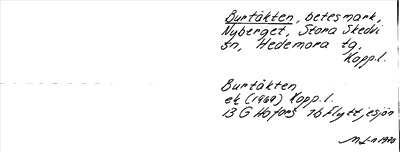 Burtäkten, betesmark,
Nyberget, Stora Skedvi
sn, Hedemora tg,
Kopp.l.
Burtäkten
ek (1969) Kopp.l.
13 G Hofors 7b Flyttjesjön
1970